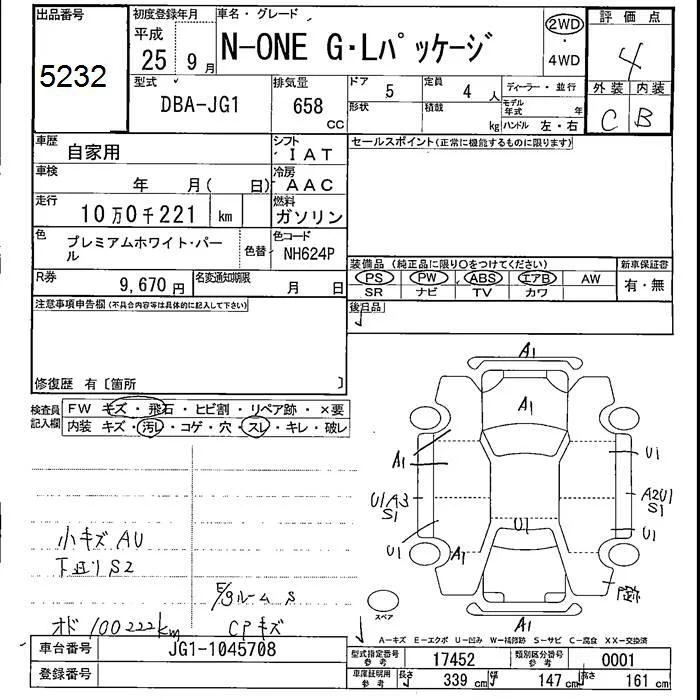 出品番号
5232
初度登録年月
平成
25年 9月
車名・グレード
N-ONE G・Lパッケージ
2WD
・
4WD
評価点
4
外装 内装
C B
型式
DBA-JG1
排気量
658
cc
ドア
5
定員
4 人
形状
積載
kg
ディーラー・並行
モデル年式 年
ハンドル 左・右
車歴
自家用
シフト
IAT
車検
年 月( 日)
冷房
AAC
走行
10万0千221 km
燃料
ガソリン
色
プレミアムホワイト・パール
色替
色コード
NH624P
R券
9,670 円
名変通知期限
月 日
セールスポイント(正常に機能するものに限ります)
装備品 (純正品に限り○をつけてください)
PS PW ABS エアB AW
SR ナビ TV カワ
新車保証書
有・無
後日品
注意事項申告欄(不具合内容等は具体的に記入して下さい)
修復歴 有〔箇所 〕
検査員
記入欄
FW キズ・飛石・ヒビ割・リペア跡・×要
内装 キズ・汚レ・コゲ・穴・スレ・キレ・破レ
小キズ AU
下廻り S2
E/gルーム S
オド 100222km
CPキズ
A1
A1
A1
U1
U1/A3
S1
A2U1
S1
U1
U1
U1
A1
P跡
スペア
A1
A-キズ E-エクボ U-凹み W-補修跡 S-サビ C-腐食 XX-交換済
車台番号
JG1-1045708
登録番号
型式指定番号
参考
17452
類別区分番号
参考
0001
車庫証明用
参考
長さ
339 cm
幅
147 cm
高さ
161 cm